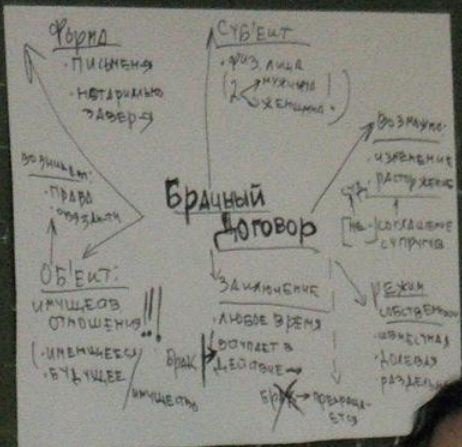 Форма
• письменя
• нотариально
завер
Суб'ект
• физ. лица
(2 мужчина
женщина)
Возможно:
• изменение
• расторжение
суд
[не] соглашение
супругов
возникают:
• права
• обязан-ти
Брачный
Договор
Об'ект:
имуществ
отношения!!!
(• имеющееся
• будущее
имущество
Заключение
• любое время
Брак
• вступает в
действие
Брак → прекраща-
ется
режим
собственно
• совместная
• долевая
раздельн